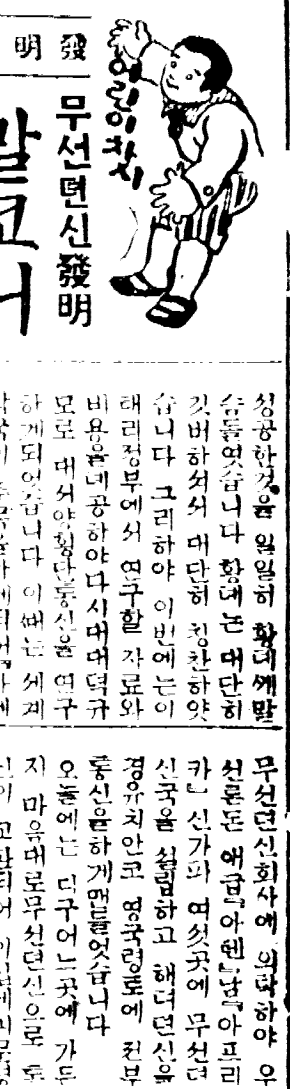 어린이차지
發明
무선뎐신發明
말코니
성공한것을 일일히 황뎨께말
슴들엿습니다 황뎨는 대단히
깃버하셔셔 대단히 칭찬하얏
습니다 그리하야 이번에는이
태리정부에셔 연구할 자료와
비용을뎨공하야다시대대덕규
모로 대셔양횡단통신을 연구
하게되엿습니다 이때는 세계
무선뎐신회사에 의탁하야 우
선론돈 애급『아덴』남『아프리
카』 신가파 여섯곳에 무선뎐
신국을 설립하고 해뎌뎐신을
경유치안코 영국령토에 전부
통신을하게맨들엇습니다
오늘에는 디구어느곳에 가든
지 마음대로무선뎐신으로 통